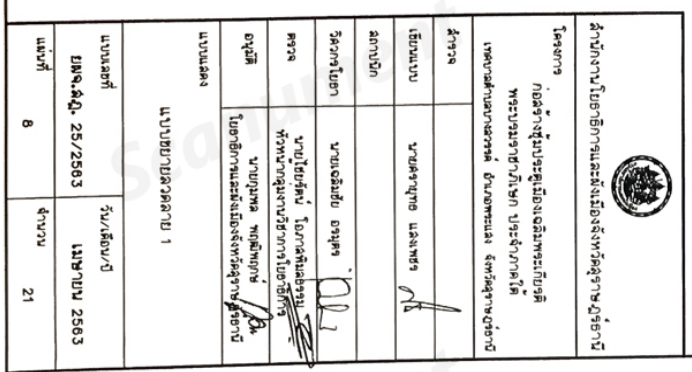 สำนักงานโยธาธิการและผังเมืองจังหวัดสุราษฎร์ธานี
โครงการ
ก่อสร้างซุ้มประตูเมืองเฉลิมพระเกียรติ
พระบรมราชาภิเษก ประจำภาคใต้
เทศบาลตำบลบางสวรรค์ อำเภอพระแสง จังหวัดสุราษฎร์ธานี
สำรวจ
เขียนแบบ นายศราวุทธ แสงเพชร
สถาปนิก
วิศวกรโยธา นายเฉลิมชัย อรมุตร
ตรวจ นายไชยรัตน์ โอภาสพิมลธรรม
หัวหน้ากลุ่มงานวิชาการโยธาธิการ
อนุมัติ นายภูมพล พฤฒิพฤกษ์
โยธาธิการและผังเมืองจังหวัดสุราษฎร์ธานี
แบบแสดง
แบบขยายลวดลาย 1
แบบเลขที่ วัน/เดือน/ปี
ยผจ.สฎ. 25/2563 เมษายน 2563
แผ่นที่ 8 จำนวน 21
Scanument